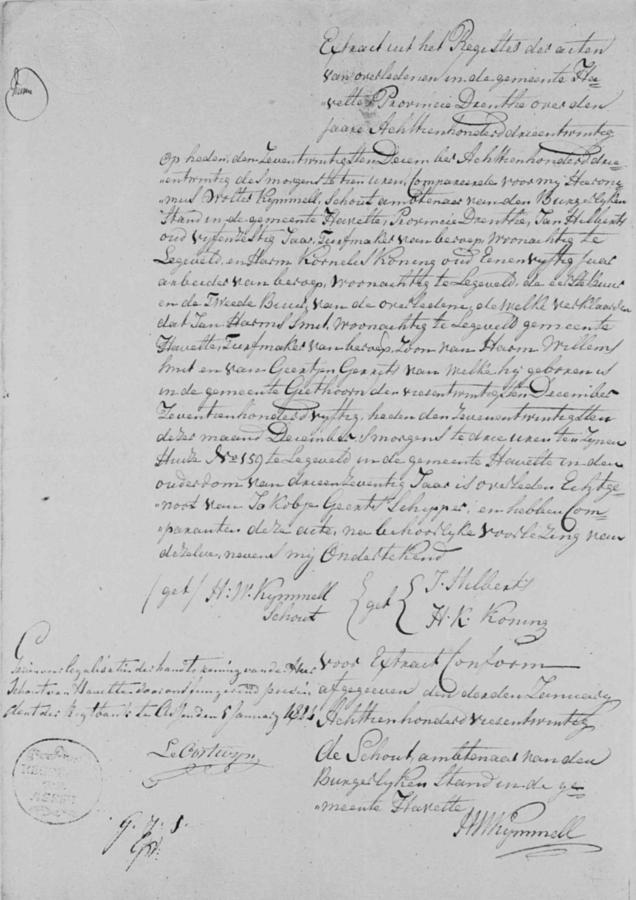 Extract uit het Register der acten
van overledenen in de gemeente Ha=
=vette Provincie Drenthe over den
jaare Achttienhonderd drieentwintig
Op heden den Zeventwintigsten December Achttienhonderd drie
=entwintig des morgens te tien uren, Compareerde voor my Hieron=
=mus Wolter Kymmell, Schout ambtenaar van den Burgerlyken
Stand in de gemeente Havette, Provincie Drenthe, Jan Hilberts
oud vijfenzestig Jaar, Turfmaker van beroep, woonachtig te
Legeveld, en Harm Kornelis Koning oud Eenenvyftig Jaar
arbeider van beroep, woonachtig te Legeveld, de eerste Buur
en de Tweede Buur, van de overledene, de welke verklaarden
dat Jan Harms Smit, woonachtig te Legeveld gemeente
Havette, Turfmaker van beroep, Zoon van Harm Willems
Smit en van Geertjen Gerrits van welke hy geboren is
in de gemeente Giethoorn den vierentwintigsten December
Zeventienhonderd vyftig, heden den Zevenentwintigsten
dezer maand December, smorgens te drie uren ten Zynen
Huize No 159 te Legeveld in de gemeente Havette in den
ouderdom van drieenzeventig Jaar is overleden Echtge=
=noot van Jakobje Geerts Schipper, en hebben Com=
=paranten deze acte, na behoorlyke voorlezing van
dezelve, nevens mij Onderteekend
(get) H. W. Kymmell
Schout
get J. Hilberts
H. K. Koning
voor Extract Conform
afgegeven den derden Januarij
Achttienhonderd vierentwintig
de Schout, ambtenaar van den
Burgerlyken Stand in de ge=
=meente Havette
HWKymmell
voor legalisatie der handteekening van de Heer
Schout van Havette door ons fungerend presi=
dent der regtbank te Assen den 5 January 1824